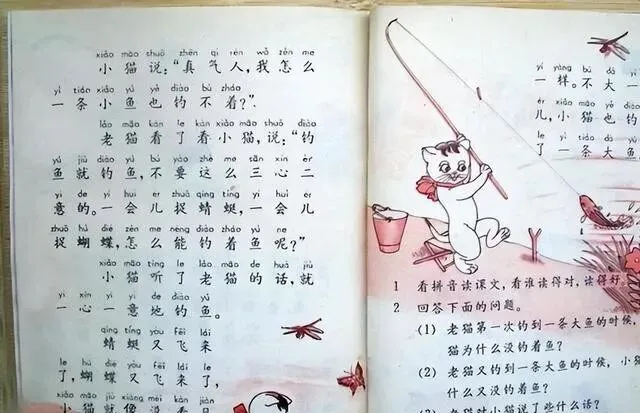 xiǎo māo shuō zhēn qì rén wǒ zěn me
小猫说:“真气人,我怎么
yì tiáo xiǎo yú yě diào bù zháo
一条小鱼也钓不着?”
lǎo māo kàn le kàn xiǎo māo shuō diào
老猫看了看小猫,说:“钓
yú jiù diào yú bú yào zhè me sān xīn èr
鱼就钓鱼,不要这么三心二
yì de yí huì er zhuō qīng tíng yí huì er
意的。一会儿捉蜻蜓,一会儿
zhuō hú dié zěn me néng diào zháo yú ne
捉蝴蝶,怎么能钓着鱼呢?”
xiǎo māo tīng le lǎo māo de huà jiù
小猫听了老猫的话,就
yì xīn yí yì de diào yú
一心一意地钓鱼。
qīng tíng yòu fēi lái
蜻蜓又飞来
le hú dié yòu fēi lái
了,蝴蝶又飞来了,
xiǎo māo jiù xiàng méi kàn jiàn
小猫就像没看见
yí yàng bú dà yí
一样。不大一
ér xiǎo māo yě diào
儿,小猫也钓
le yì tiáo dà yú
了一条大鱼
1 看拼音读课文,看谁读得对,读得好。
2 回答下面的问题。
(1) 老猫第一次钓到一条大鱼的时候,
猫为什么没钓着鱼?
(2) 老猫又钓到一条大鱼的时候,小
什么又没钓着鱼?
老猫对小猫说了些什么话?